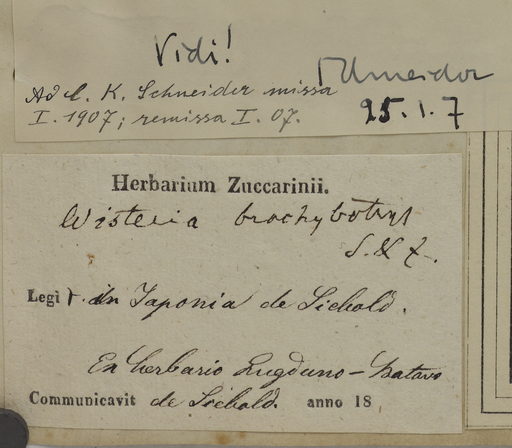 Vidi!
Schneider
Ad C. K. Schneider missa
I. 1907; remissa I. 07.
25. I. 7
Herbarium Zuccarinii.
Wisteria brachybotrys
S. & Z.
Legit. in Japonia de Siebold.
Ex herbario Lugduno-Batavo
Communicavit de Siebold. anno 18